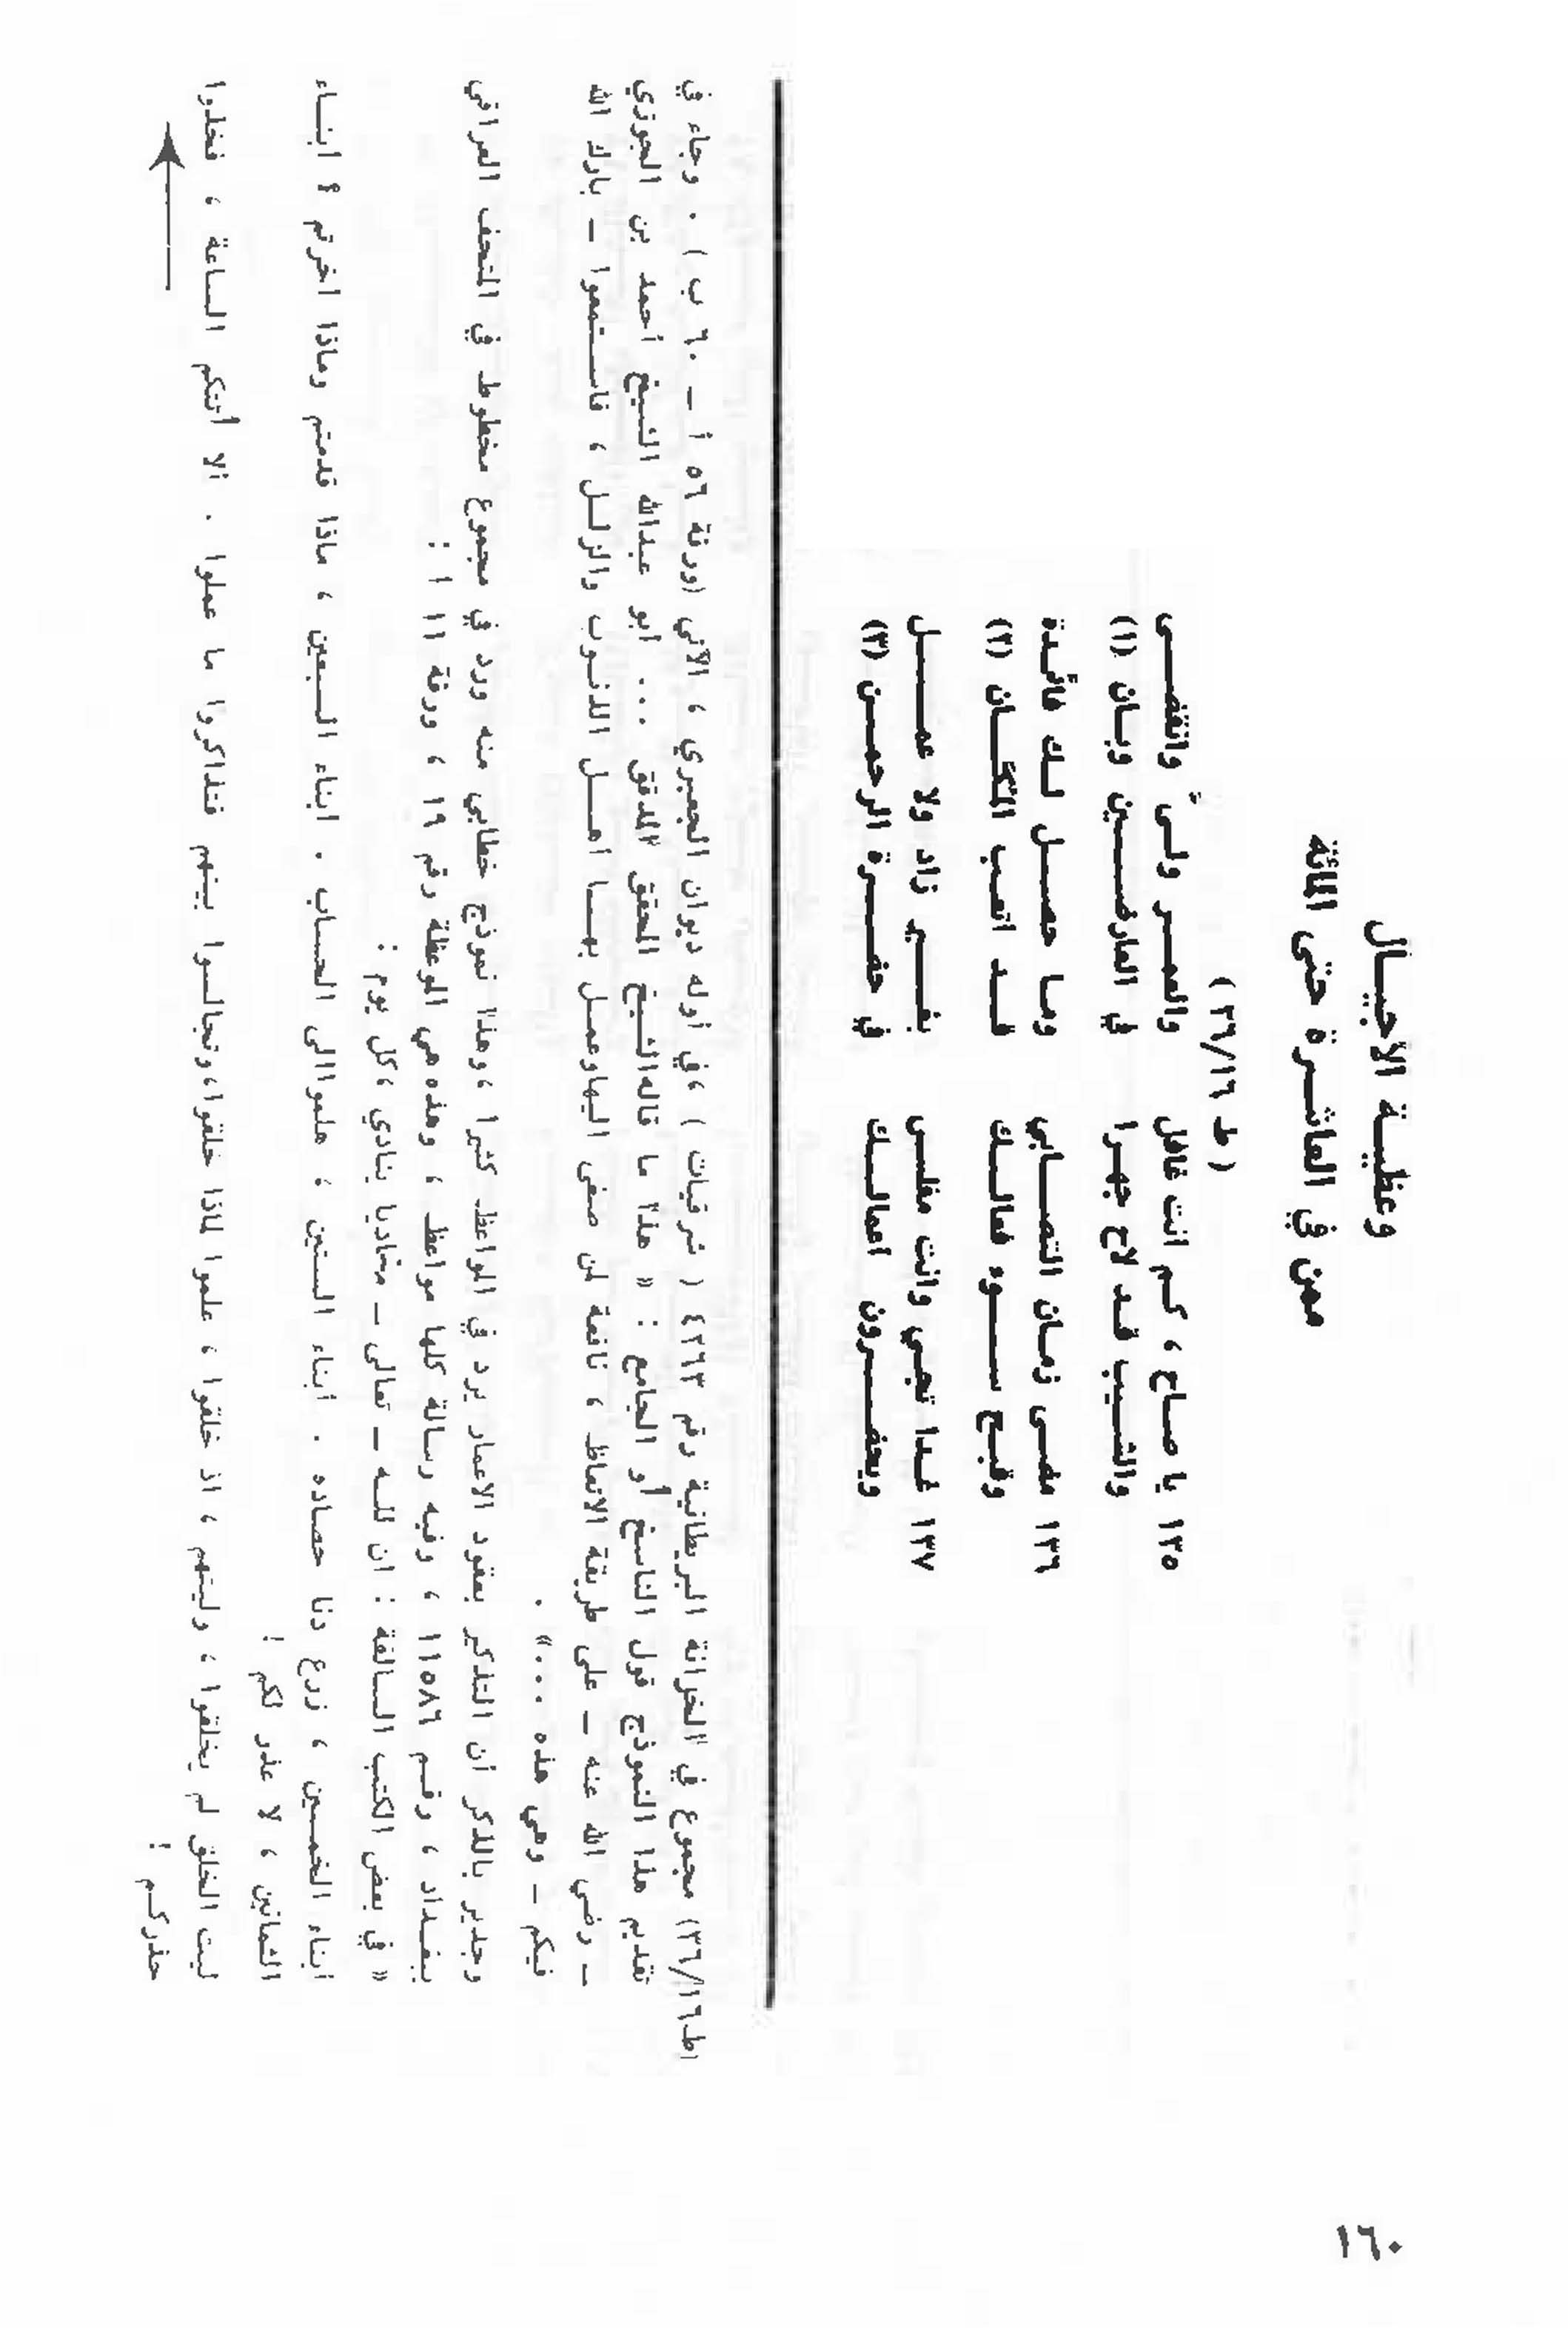 ١٦٠
وعظيـة الأجيـال
ممن في العاشـرة حتى المائة
( ط ٣٦/١٦ )
١٣٥ يا صـاح ، كـم انت غافل والعمـر ولـىّ وانقضـى
والشـيب قـد لاح جهـرا في العارضـين وبـان (١)
١٣٦ مضـى زمـان التصـابي ومـا حصـل لـك فائـدة
وقبـح سـوء فعالـك قـد اتعـب المَلَكـان (٢)
١٣٧ غـدا تجـي وانت مفلـس بغـير زاد ولا عمـل
ويحضـرون اعمالـك في حضـرة الرحمـن (٣)
(ط٣٦/١٦) مجموع في الخزانة البريطانية رقم ٤٢٦٣ ( شرقيات ) ، في أوله ديوان الجعبري ، الآتي (ورقة ٥٦ أ – ٦٠ ب ) . وجاء في
تقديم هذا النموذج قول الناسخ أو الجامع : « هذا ما قاله الشيخ المحقق المدقق ... أبو عبدالله الشيخ أحمد بن الجوزي
– رضي الله عنه – على طريقة الاتعاظ ، نافعة لمن صغى اليها وعمـل بهـا اهـل الذنـوب والزلـل ، فاسـتمعوا – بارك الله
فيكم – وهي هذه ... » .
وجدير بالذكر أن التذكير بعقود الاعمار يرد في المواعظ كثيرا ، وهذا نموذج خطابي منه ورد في مجموع مخطوط في المتحف العراقي
ببغـداد ، رقـم ١١٥٨٦ ، وفيه رسالة كلها مواعظ ، وهذه هي الموعظة رقم ١٩ ، ورقة ١١ أ :
« في بعض الكتب السـالفة : ان للـه – تعالى – مناديا ينادي ، كل يوم :
أبناء الخمـسين ، زرع دنا حصاده . ابناء السـتين ، هلموا الى الحساب . ابناء السـبعين ، ماذا قدمتم وماذا اخرتم ؟ ابنـاء
الثمانين ، لا عذر لكم !
ليت الخلق لم يخلقوا ، وليتهم ، اذ خلقوا ، علموا لماذا خلقوا ، وتجالسوا بينهم فتذاكروا ما عملوا . ألا أتتكم السـاعة ، فخذوا
حذركـم !